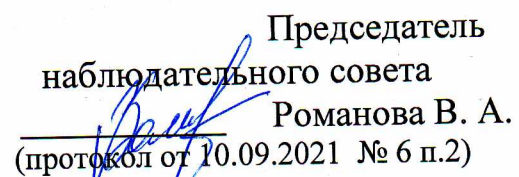 Председатель
наблюдательного совета
Романова В. А.
(протокол от 10.09.2021 № 6 п.2)